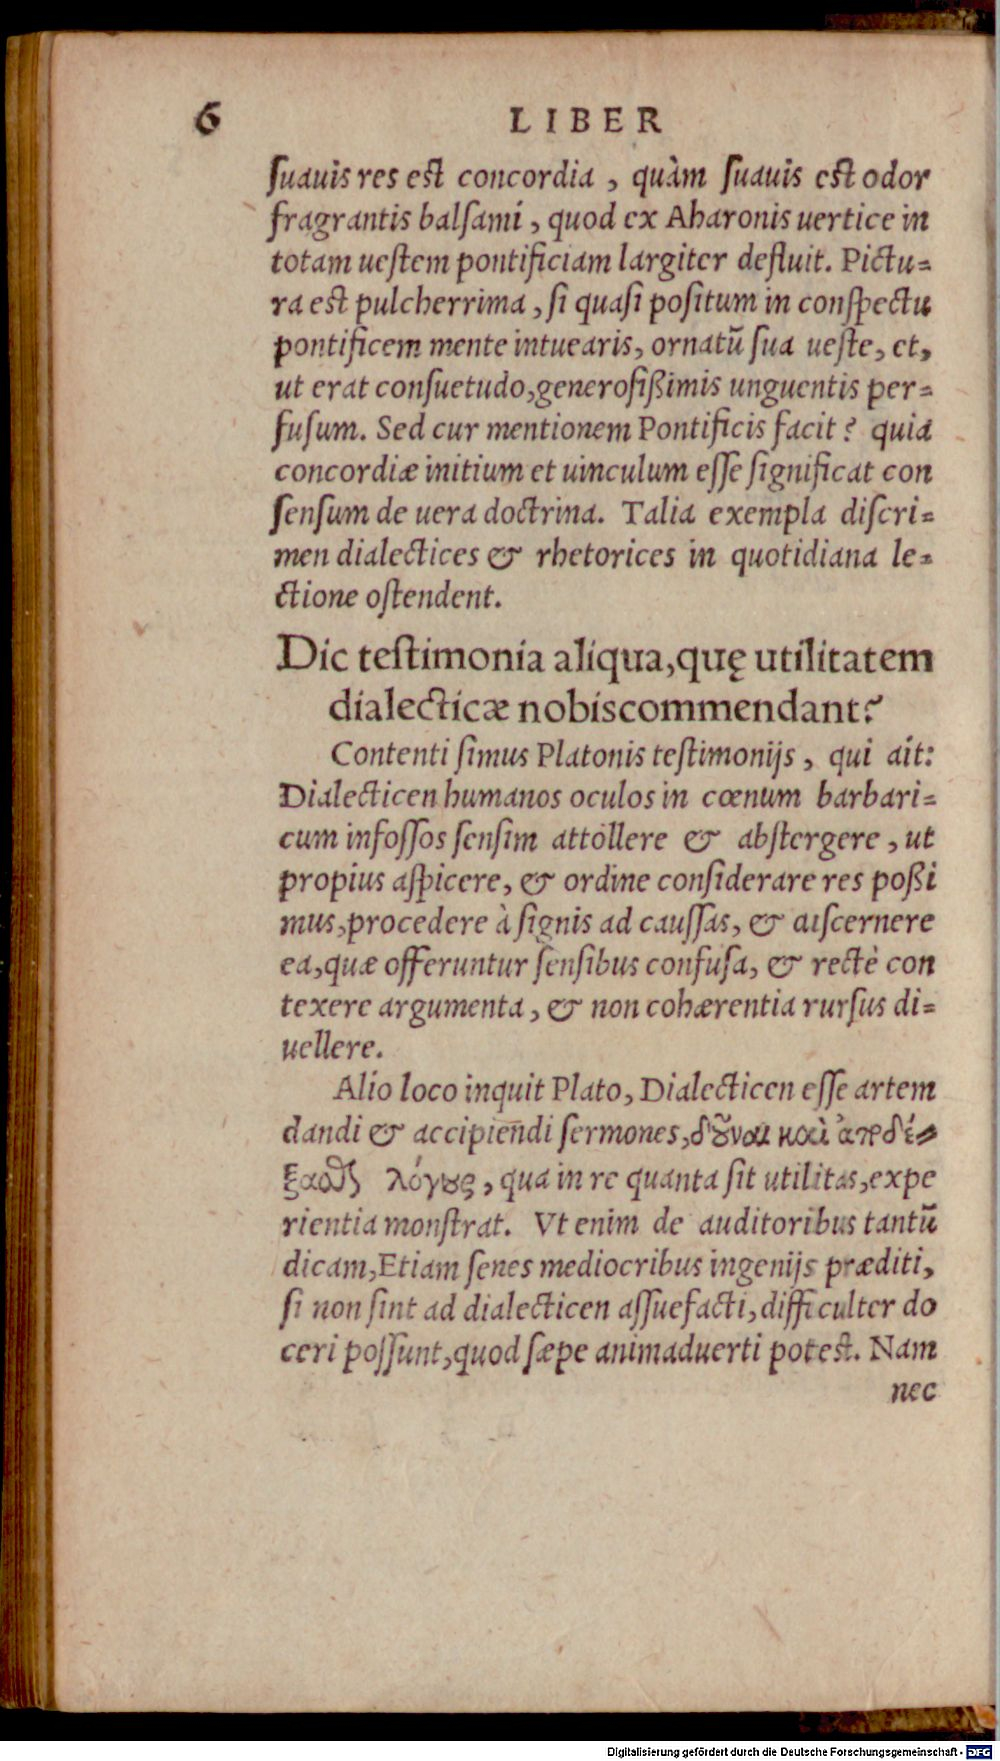 6 LIBER
suauis res est concordia, quàm suauis est odor
fragrantis balsami, quod ex Aharonis uertice in
totam uestem pontificiam largiter defluit. Pictu-
ra est pulcherrima, si quasi positum in conspectu
pontificem mente intuearis, ornatũ sua ueste, et,
ut erat consuetudo, generosißimis unguentis per-
fusum. Sed cur mentionem Pontificis facit? quia
concordiæ initium et uinculum esse significat con
sensum de uera doctrina. Talia exempla discri-
men dialectices & rhetorices in quotidiana le-
ctione ostendent.
Dic testimonia aliqua, quę utilitatem
dialecticæ nobis commendant?
Contenti simus Platonis testimonijs, qui ait:
Dialecticen humanos oculos in cœnum barbari-
cum infossos sensim attollere & abstergere, ut
propius aspicere, & ordine considerare res poßi
mus, procedere à signis ad caussas, & discernere
ea, quæ offeruntur sensibus confusa, & rectè con
texere argumenta, & non cohærentia rursus di-
uellere.
Alio loco inquit Plato, Dialecticen esse artem
dandi & accipiendi sermones, δοῦναι καὶ ἀποδέ-
ξασθαι λόγους, qua in re quanta sit utilitas, expe
rientia monstrat. Vt enim de auditoribus tantũ
dicam, Etiam senes mediocribus ingenijs præditi,
si non sint ad dialecticen assuefacti, difficulter do
ceri possunt, quod sæpe animaduerti potest. Nam
nec
Digitalisierung gefördert durch die Deutsche Forschungsgemeinschaft - DFG